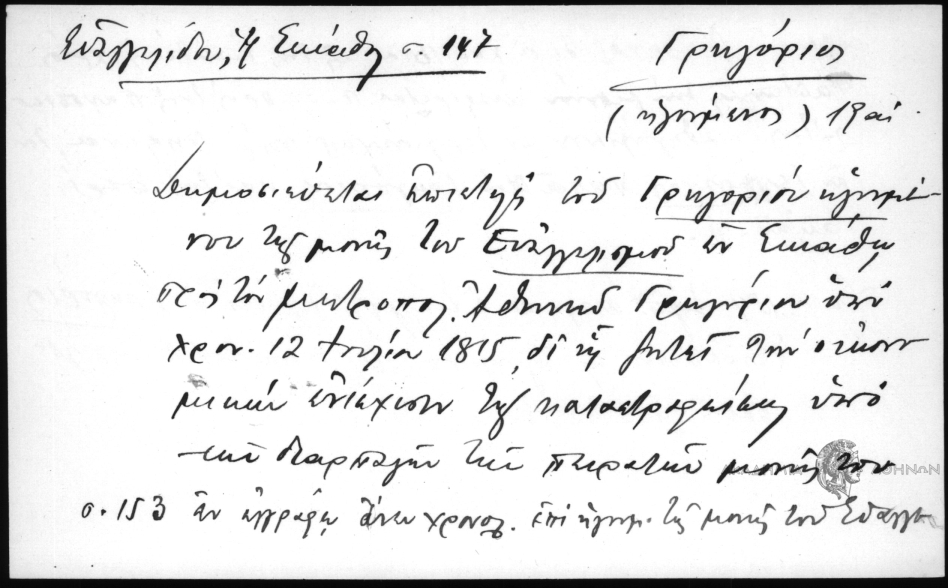 Εὐαγγελίδου, Ἡ Σκιάθος σ. 147
Γρηγόριος
(ἡγούμενος) 19 αἰ.
Δημοσιεύεται ἐπιστολὴ τοῦ Γρηγορίου ἡγουμέ-
νου τῆς μονῆς τοῦ Εὐαγγελισμοῦ ἐν Σκιάθῳ
πρὸς τὸν μητροπολ. Ἀθηνῶν Γρηγόριον ὑπὸ
χρον. 12 Ἰουλίου 1815, δι' ἧς ζητεῖ τὴν οἰκονο-
μικὴν ἐνίσχυσιν τῆς καταστραφείσης ὑπὸ
τὴν διαρπαγὴν τῶν πειρατῶν μονῆς του
σ. 153 ἐν ἐγγράφῳ ἄνευ χρονολ. ἐπὶ ἡγουμ. τῆς μονῆς τοῦ Εὐαγγε
ΑΘΗΝΩΝ